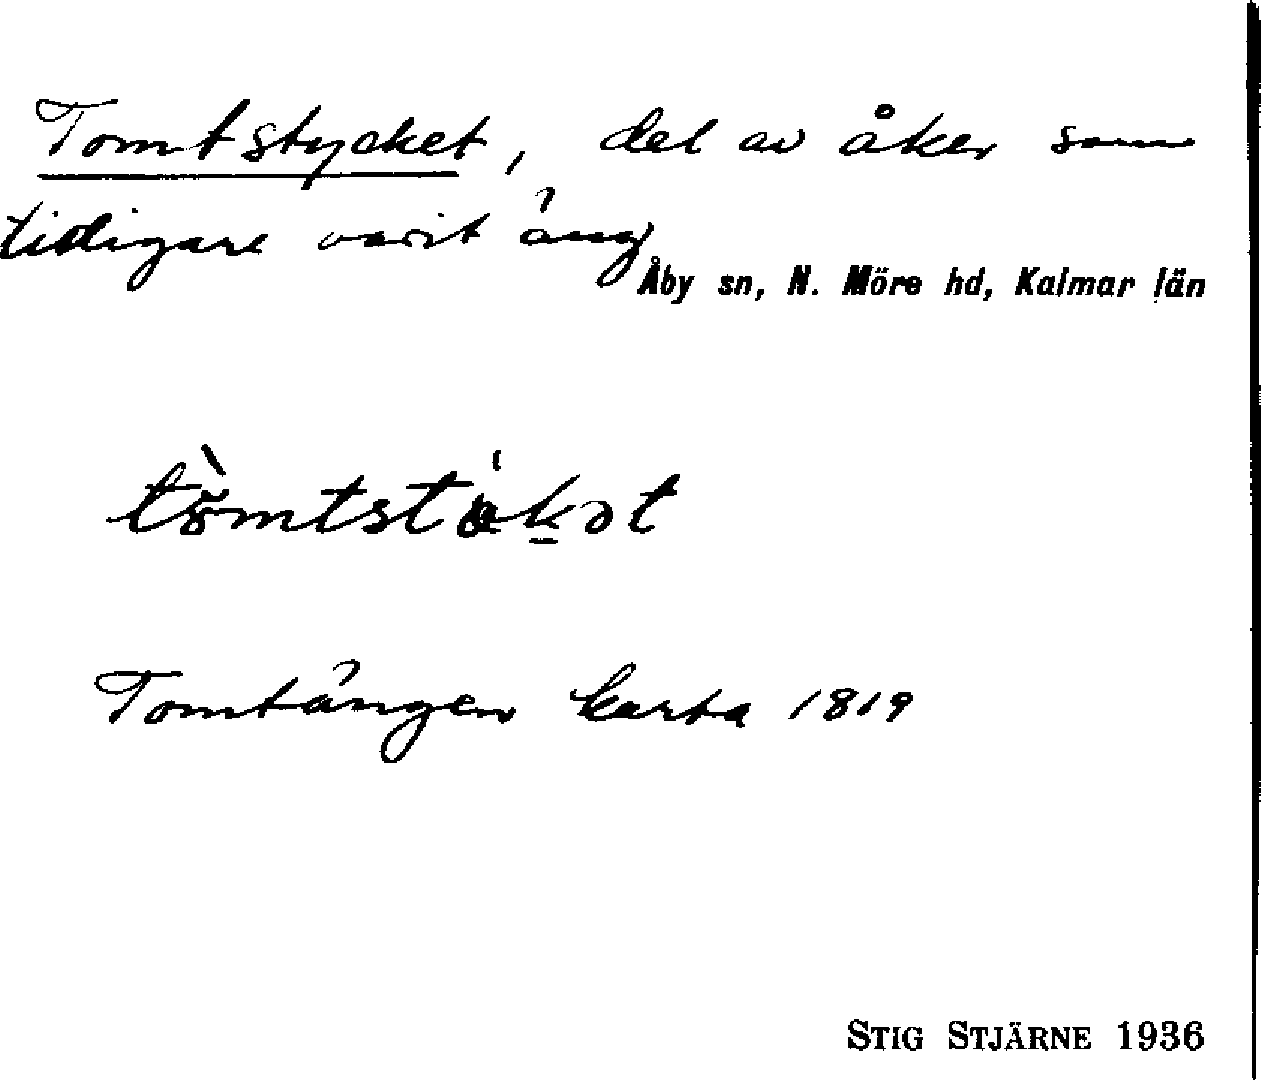 Tomtstycket, del av åker som
tidigare varit äng
Åby sn, N. Möre hd, Kalmar län
Tomtängen karta 1819
STIG STJÄRNE 1936